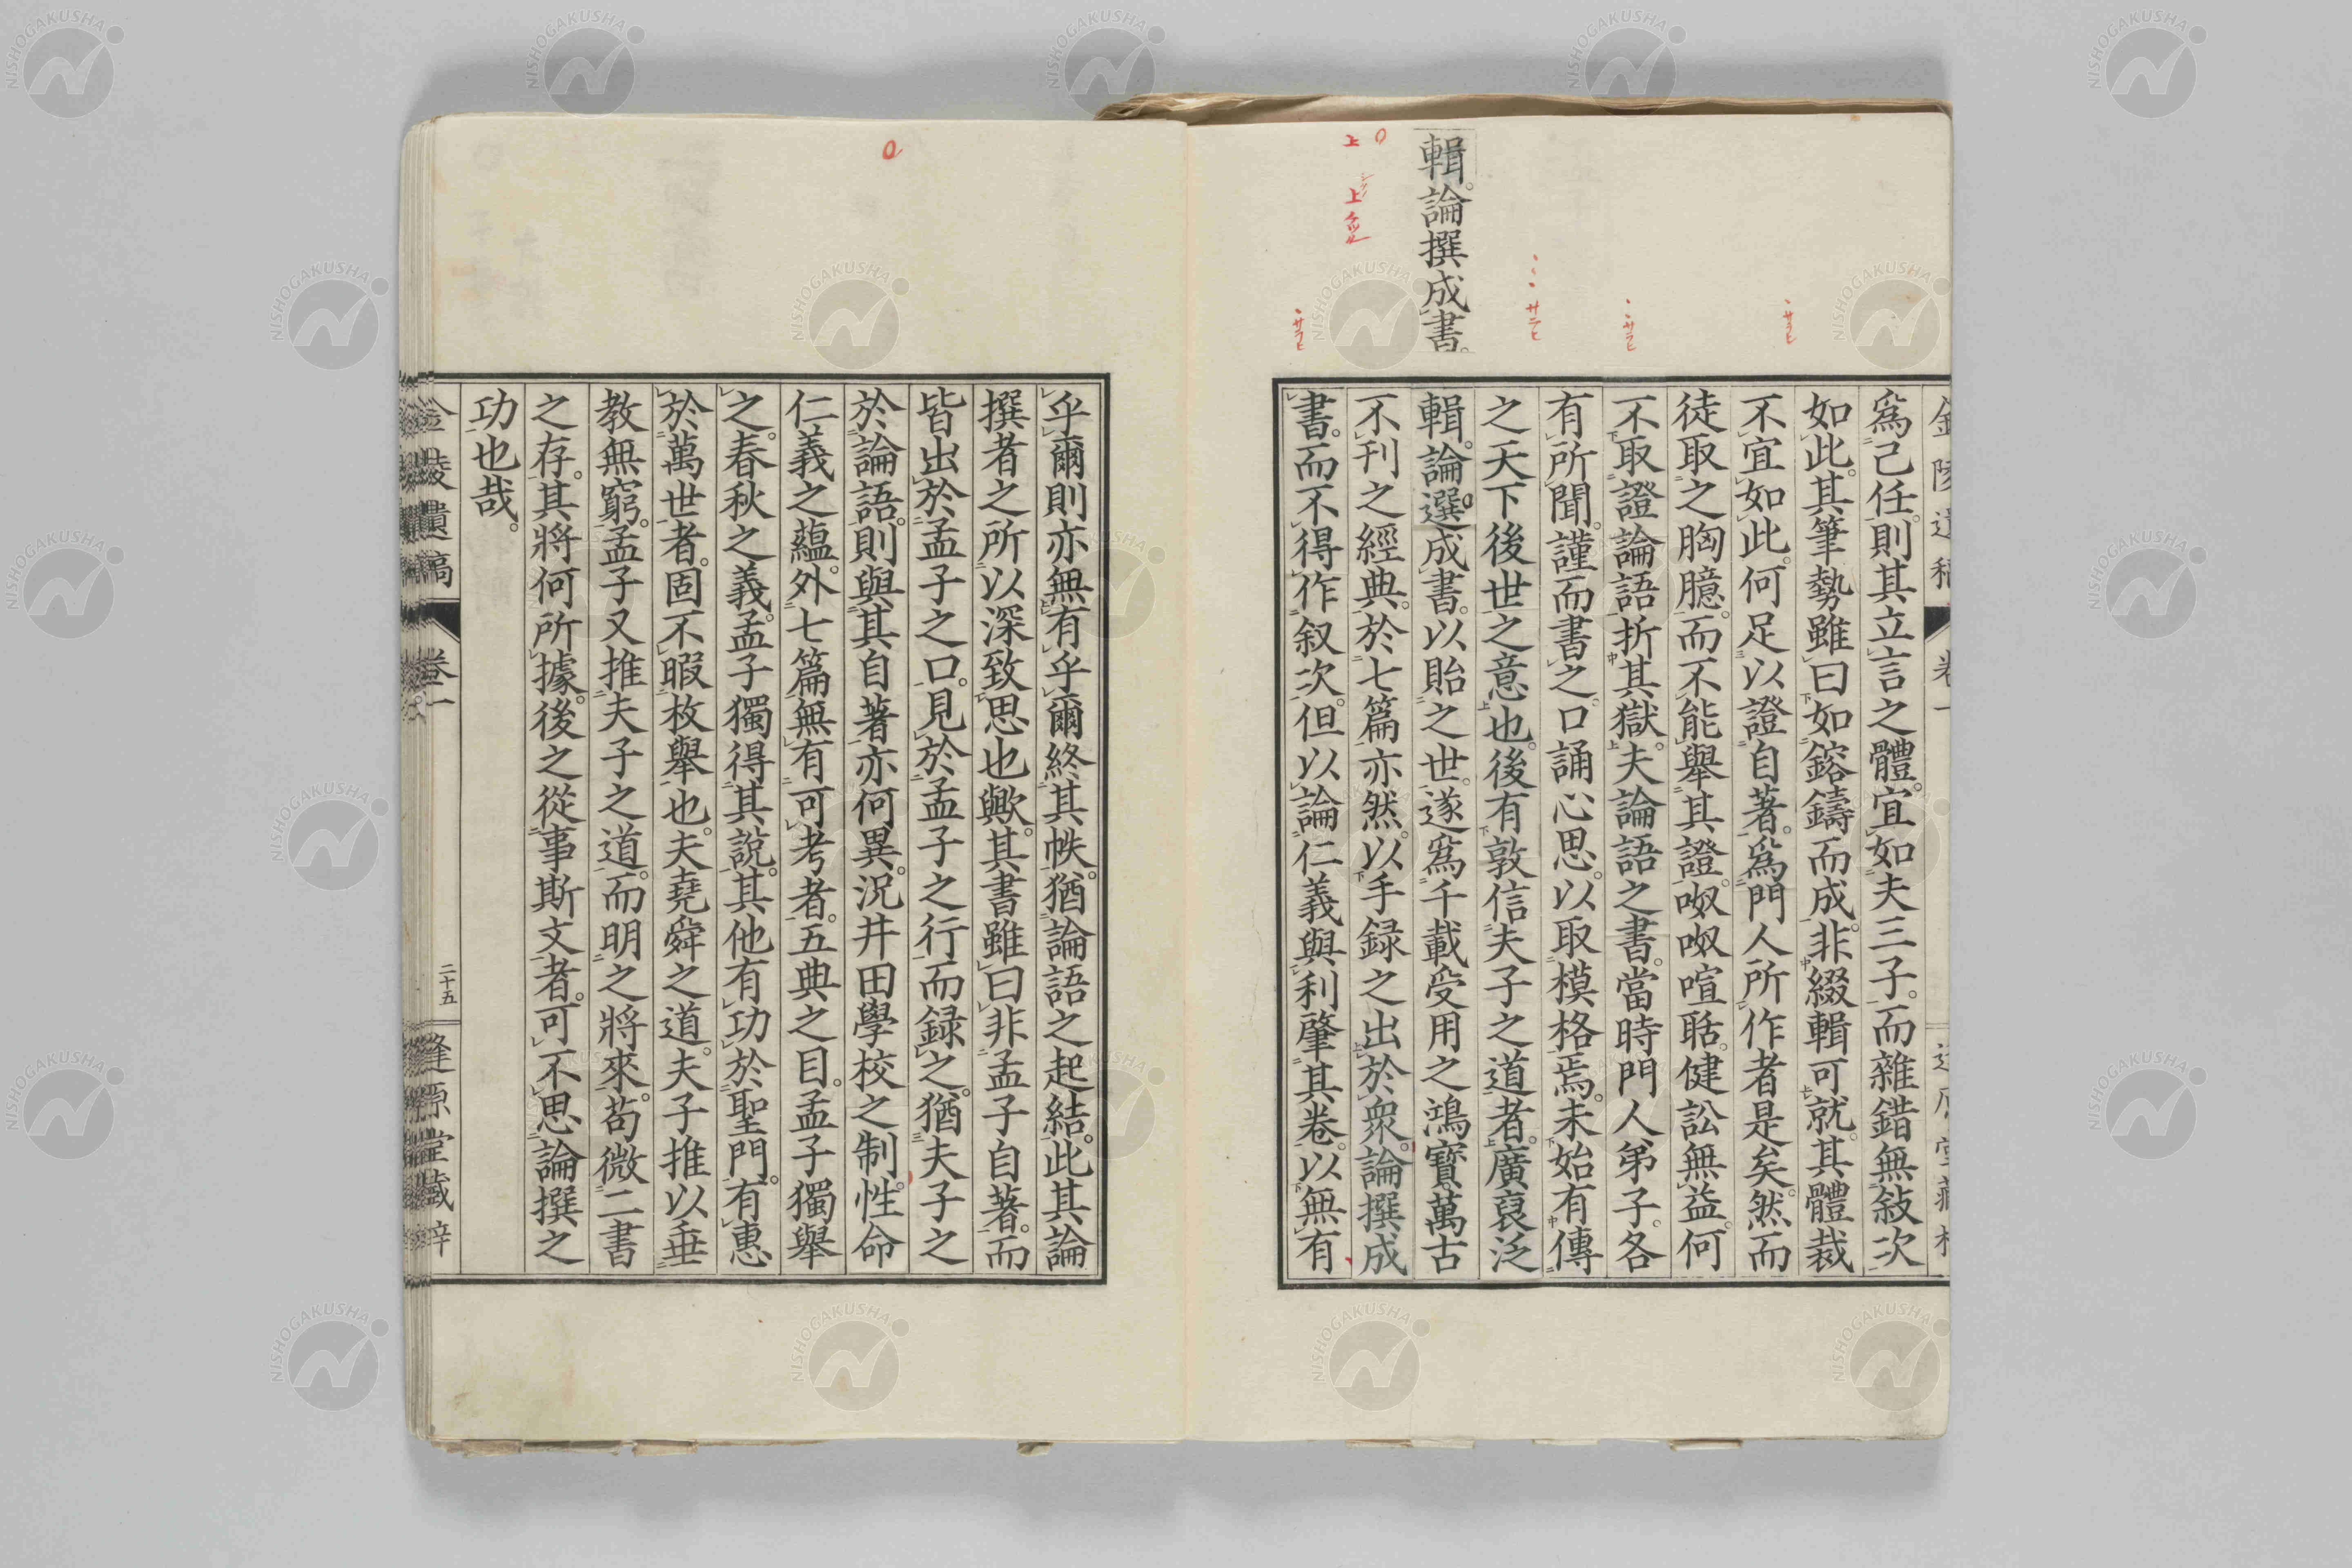 輯。論撰成書。
爲己任。則其立言之體。宜如夫三子。而雜錯無敍次
如此。其筆勢雖曰如鎔鑄而成。非綴輯可就。其體裁
不宜如此。何足以證自著。爲門人所作者是矣。然而
徒取之胸臆。而不能舉其證。呶呶喧聒。健訟無益。何
不取證論語折其獄。夫論語之書。當時門人弟子。各
有所聞。謹而書之。口誦心思。以取模格焉。未始有傳
之天下後世之意也。後有敦信夫子之道者。廣裒泛
輯。論選成書。以貽之世。遂爲千載受用之鴻寶。萬古
不刊之經典。於七篇亦然。以手録之出於衆。論撰成
書。而不得作叙次。但以論仁義與利肇其卷。以無有
乎爾則亦無有乎爾終其帙。猶論語之起結。此其論
撰者之所以深致思也歟。其書雖曰非孟子自著。而
皆出於孟子之口。見於孟子之行而録之。猶夫子之
於論語。則與其自著亦何異。況井田學校之制。性命
仁義之蘊。外七篇無有可考者。五典之目。孟子獨舉
之。春秋之義。孟子獨得其說。其他有功於聖門。有惠
於萬世者。固不暇枚舉也。夫堯舜之道。夫子推以垂
教無窮。孟子又推夫子之道。而明之將來。苟微二書
之存。其將何所據。後之從事斯文者。可不思論撰之
功也哉。
卷一
二十五
逢原堂藏梓